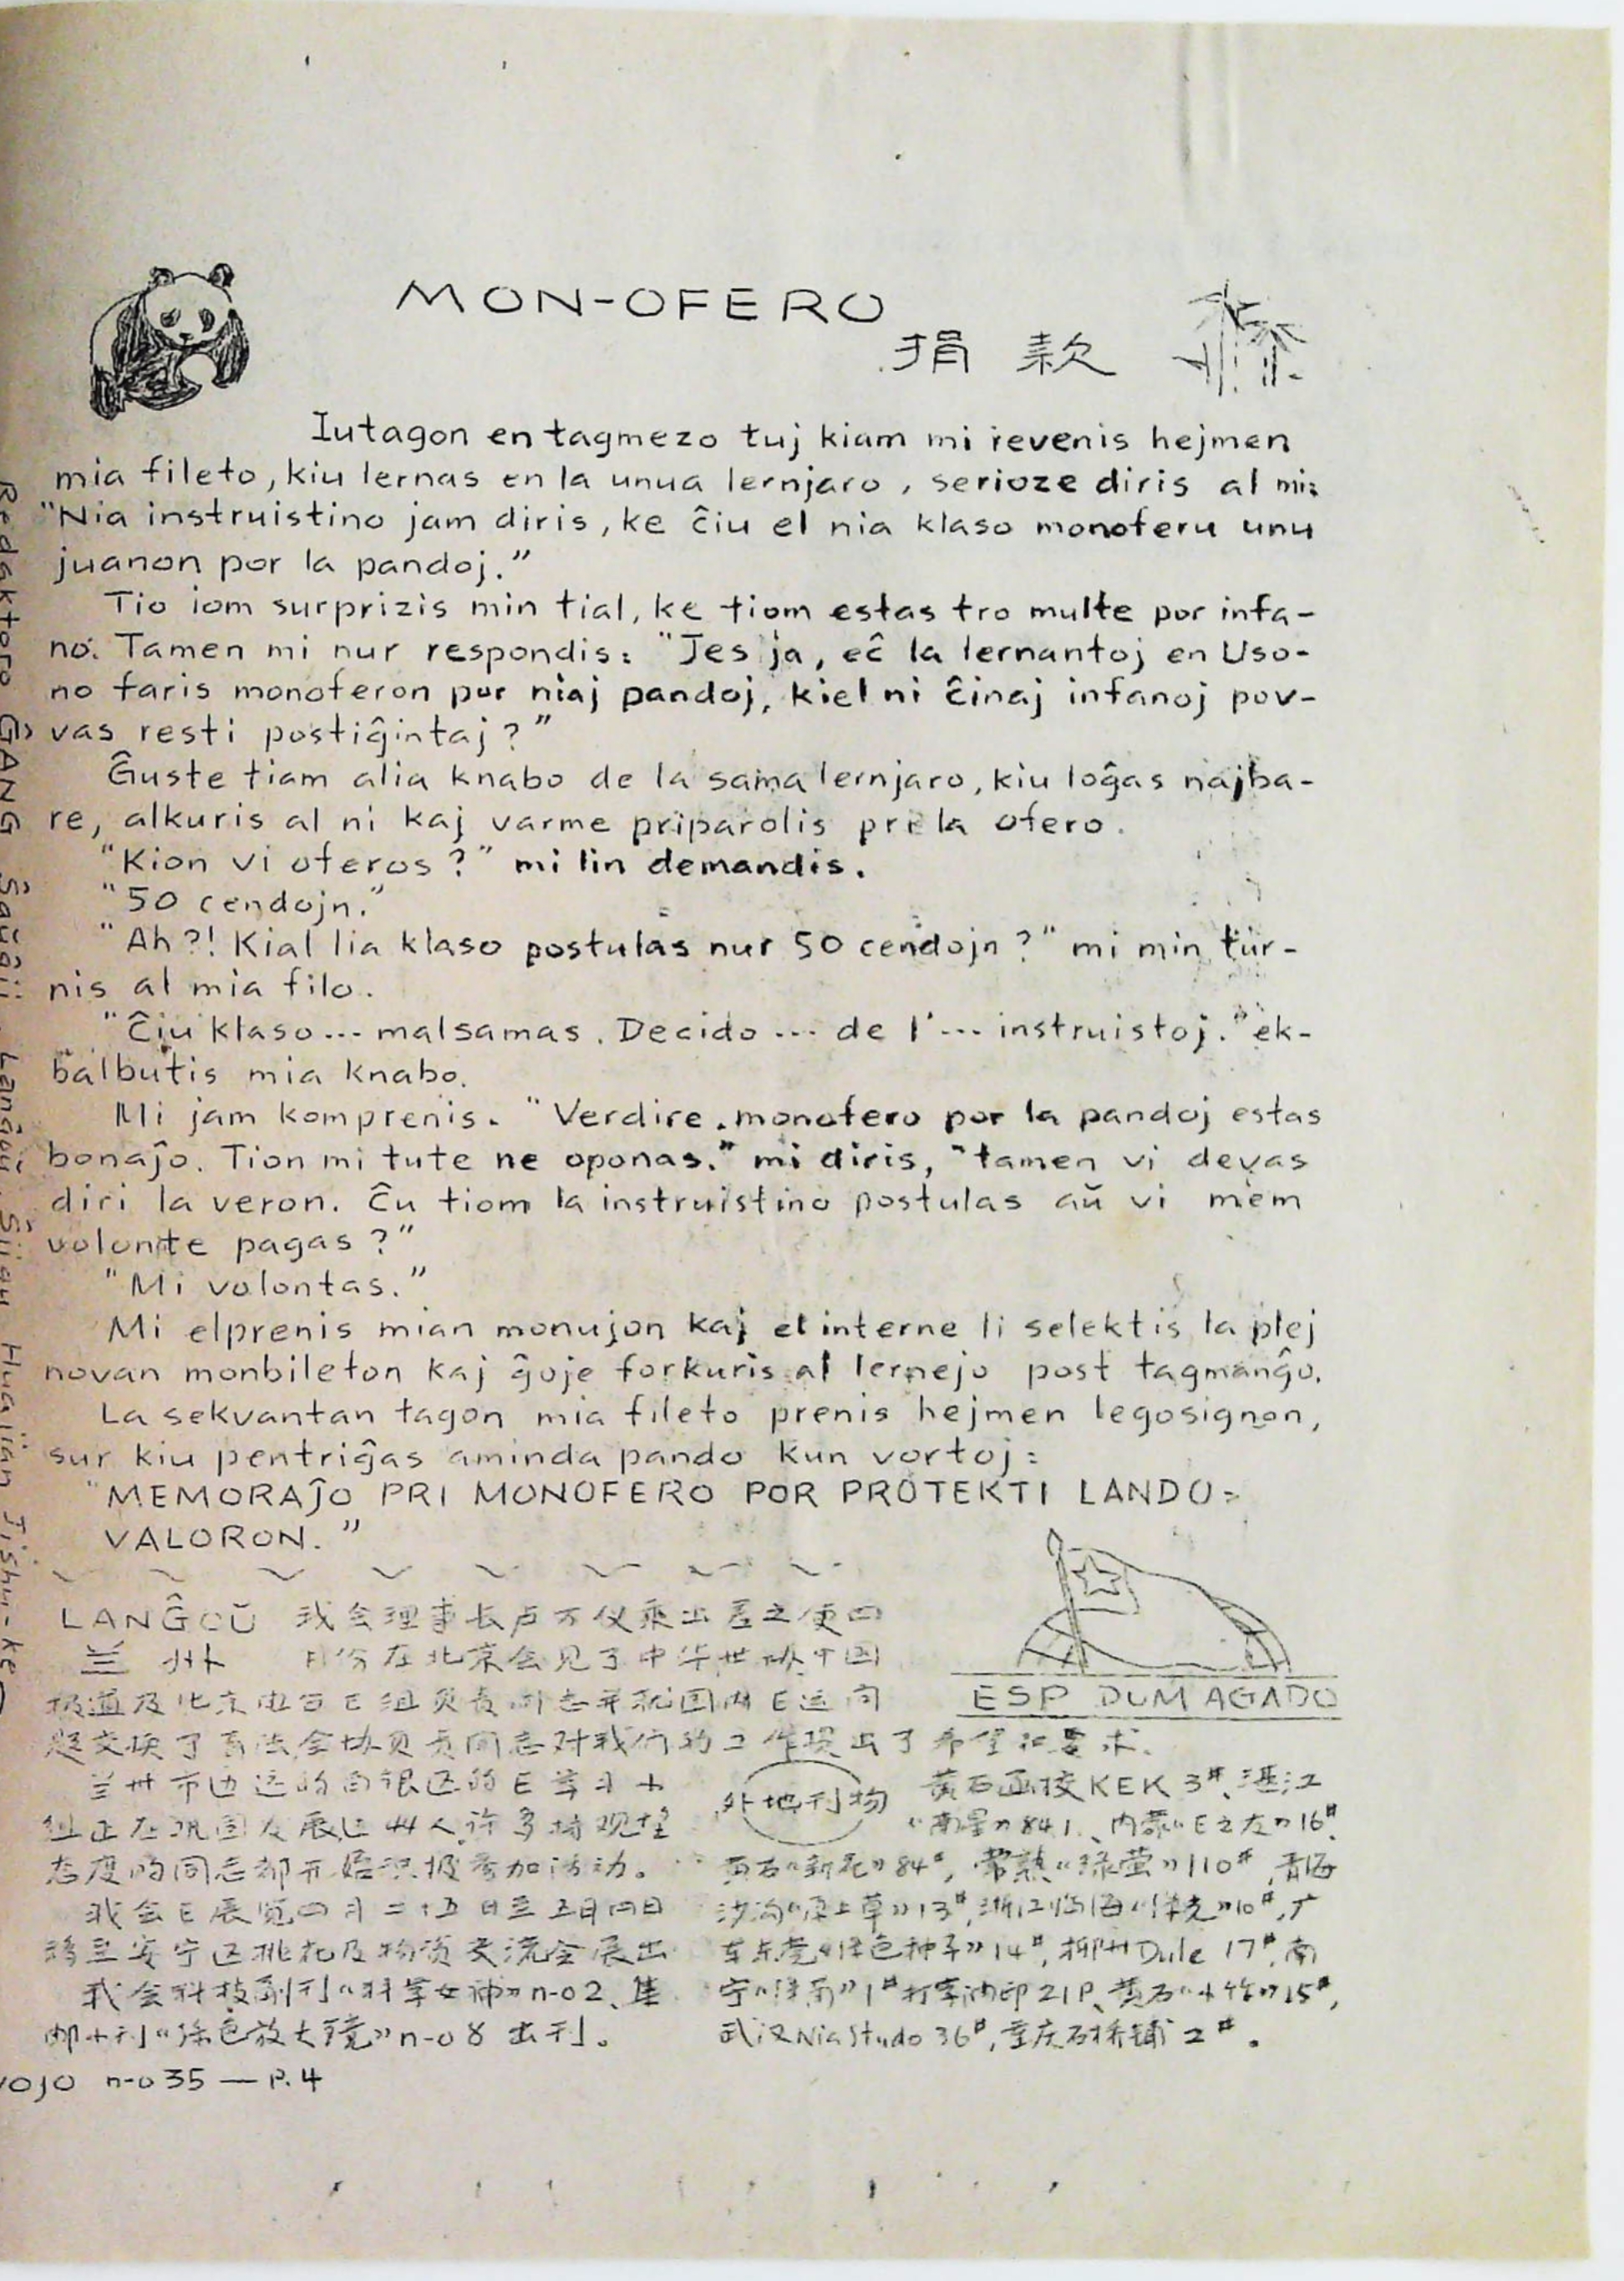 MON-OFERO
捐 款
Iutagon en tagmezo tuj kiam mi revenis hejmen
mia fileto, kiu lernas en la unua lernjaro, serioze diris al mi:
"Nia instruistino jam diris, ke ĉiu el nia klaso monoferu unu
juanon por la pandoj."
Tio iom surprizis min tial, ke tiom estas tro multe por infa-
no. Tamen mi nur respondis: "Jes ja, eĉ la lernantoj en Uso-
no faris monoferon por niaj pandoj, kiel ni ĉinaj infanoj pov-
vas resti postiĝintaj?"
Ĝuste tiam alia knabo de la sama lernjaro, kiu loĝas najba-
re, alkuris al ni kaj varme priparolis pri la ofero.
"Kion vi oferos?" mi lin demandis.
"50 cendojn."
"Ah?! Kial lia klaso postulas nur 50 cendojn?" mi min tur-
nis al mia filo.
"Ĉiu klaso... malsamas. Decido... de l'... instruistoj." ek-
balbutis mia knabo.
Mi jam komprenis. "Verdire, monofero por la pandoj estas
bonaĵo. Tion mi tute ne oponas." mi diris, "tamen vi devas
diri la veron. Ĉu tiom la instruistino postulas aŭ vi mem
volonte pagas?"
"Mi volontas."
Mi elprenis mian monujon kaj el interne li selektis la plej
novan monbileton kaj ĝoje forkuris al lernejo post tagmanĝo.
La sekvantan tagon mia fileto prenis hejmen legosignon,
sur kiu pentriĝas aminda pando kun vortoj:
"MEMORAĴO PRI MONOFERO POR PROTEKTI LANDO-
VALORON."
ESP DUM AGADO
LANĜOŬ 我会理事长卢万仪乘出差之便四
兰 州 月份在北京会见了中华世协中国
报道及北京电台E组负责同志并就国内E运问
题交换了看法全协负责同志对我们的工作提出了希望和要求.
兰州市边远的白银区的E学习小
组正在巩固发展已44人许多持观望
态度的同志都开始积极参加活动。
我会E展览四月二十五日至五月四日
移至安宁区桃花及物资交流会展出
我会科技副刊《科学女神》n-o 2、集
邮小刊《绿色放大镜》n-o 8 出刊。
外地刊物 黄石函校KEK 3#、湛江
《南星》841、内蒙《E之友》16#、
黄石《新花》84#, 常熟《绿萤》110#, 青海
沙沟《原上草》13#, 浙江临海《绿光》10#, 广
东东莞《绿色种子》14#, 柳州Dule 17#, 南
宁 1#打字油印21P、黄石《小竹》15#,
武汉Nia Studo 36#, 重庆石桥铺 2#。
VOJO n-o 35 — P. 4
Redaktoro GANG